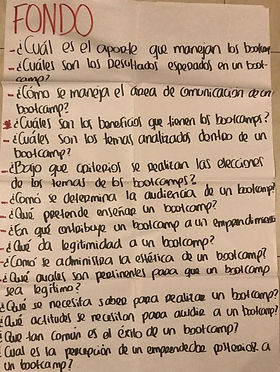 FONDO
- ¿Cuál es el aporte que manejan los bootcamp
- ¿Cuáles son los Resultados esperados en un boot-
camp?
- ¿Cómo se maneja el área de comunicación de un
bootcamp?
* ¿Cuáles son los beneficios que tienen los bootcamps?
- ¿Cuáles son los temas analizados dentro de un
bootcamp?
- ¿Bajo que criterios se realizan las elecciones
de los temas de los bootcamps?
- ¿Como se determina la audiencia de un bootcamp?
- ¿Qué pretende enseñar un bootcamp?
- ¿En qué contribuye un bootcamp a un emprendimiento
- ¿Qué da legitimidad a un bootcamp?
- ¿Como se administra la estética de un bootcamp?
- ¿Qué avales son pertinentes para que un bootcamp
sea legítimo?
¿Qué se necesita saber para realizar un bootcamp?
¿Qué actitudes se necesitan para acudir a un bootcamp?
¿Que tan común es el éxito de un bootcamp?
¿Cual es la percepción de un emprendedor posterior a
un bootcamp?